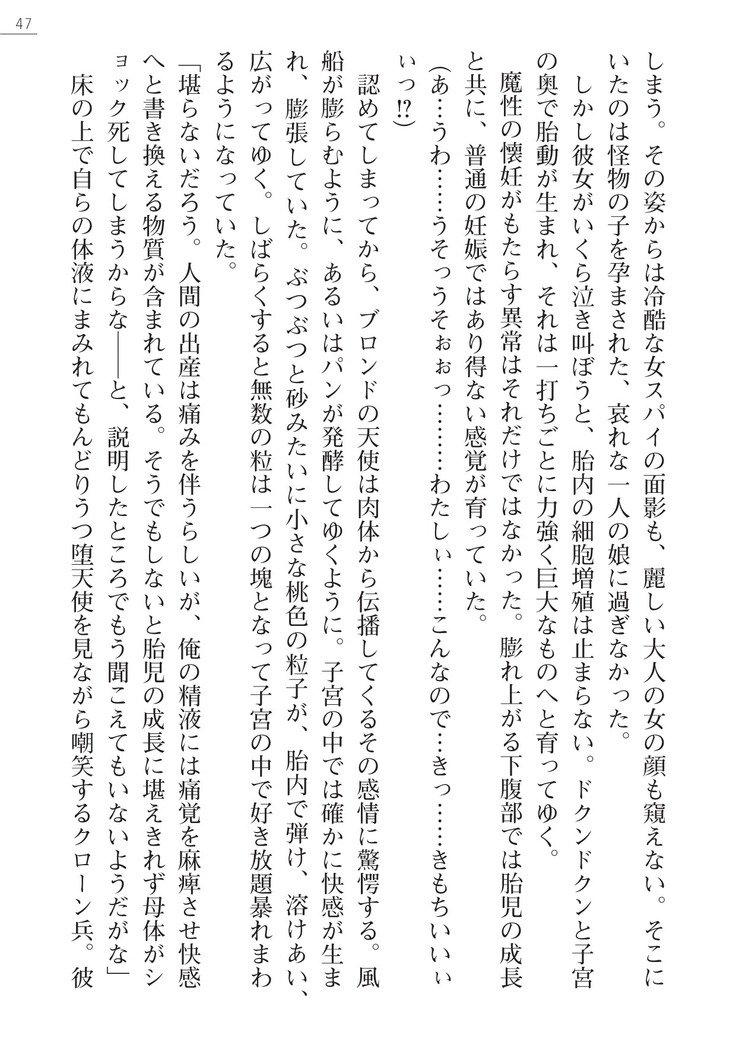 47
しまう。その姿からは冷酷な女スパイの面影も、麗しい大人の女の顔も窺えない。そこに
いたのは怪物の子を孕まされた、哀れな一人の娘に過ぎなかった。
しかし彼女がいくら泣き叫ぼうと、胎内の細胞増殖は止まらない。ドクンドクンと子宮
の奥で胎動が生まれ、それは一打ちごとに力強く巨大なものへと育ってゆく。
魔性の懐妊がもたらす異常はそれだけではなかった。膨れ上がる下腹部では胎児の成長
と共に、普通の妊娠ではあり得ない感覚が育っていた。
（あ…うわ……うそっうそぉぉっ………わたしぃ……こんなのできっ……きもちいいぃ
ぃっ!?）
認めてしまってから、ブロンドの天使は肉体から伝播してくるその感情に驚愕する。風
船が膨らむように、あるいはパンが発酵してゆくように。子宮の中では確かに快感が生ま
れ、膨張していた。ぶつぶつと砂みたいに小さな桃色の粒子が、胎内で弾け、溶けあい、
広がってゆく。しばらくすると無数の粒は一つの塊となって子宮の中で好き放題暴れまわ
るようになっていた。
「堪らないだろう。人間の出産は痛みを伴うらしいが、俺の精液には痛覚を麻痺させ快感
へと書き換える物質が含まれている。そうでもしないと胎児の成長に堪えきれず母体がシ
ョック死してしまうからな――と、説明したところでもう聞こえてもいないようだがな」
床の上で自らの体液にまみれてもんどりうつ堕天使を見ながら嘲笑するクローン兵。彼